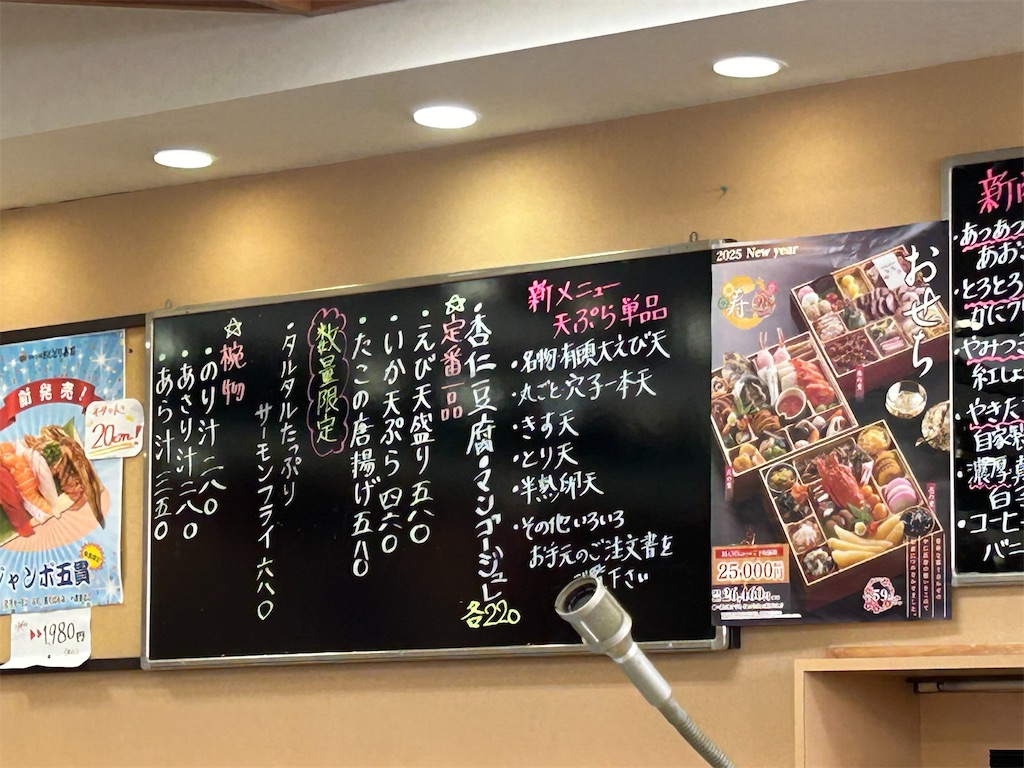 新発売!
20cm!
ジャンボ五貫
1,980円
新メニュー
天ぷら単品
・名物有頭大えび天
・丸ごと穴子一本天
・きす天
・とり天
・半熟卵天
・その他いろいろ
お手元のご注文書を
ご覧下さい
・杏仁豆腐・マンゴージュレ
各220
☆定番一品
・えび天盛り 五八〇
・いか天ぷら 四六〇
・たこの唐揚げ 五八〇
数量限定
・タルタルたっぷり
サーモンフライ 六八〇
☆椀物
・のり汁 二八〇
・あさり汁 二八〇
・あら汁 二五〇
2025 New year
おせち
寿
25,000円
26,460円
59
新
・あつあつ
あおさ
・とろとろ
かに
・やみつ
紅し
・やきた
自家製
・濃厚
・コーヒー
バニ